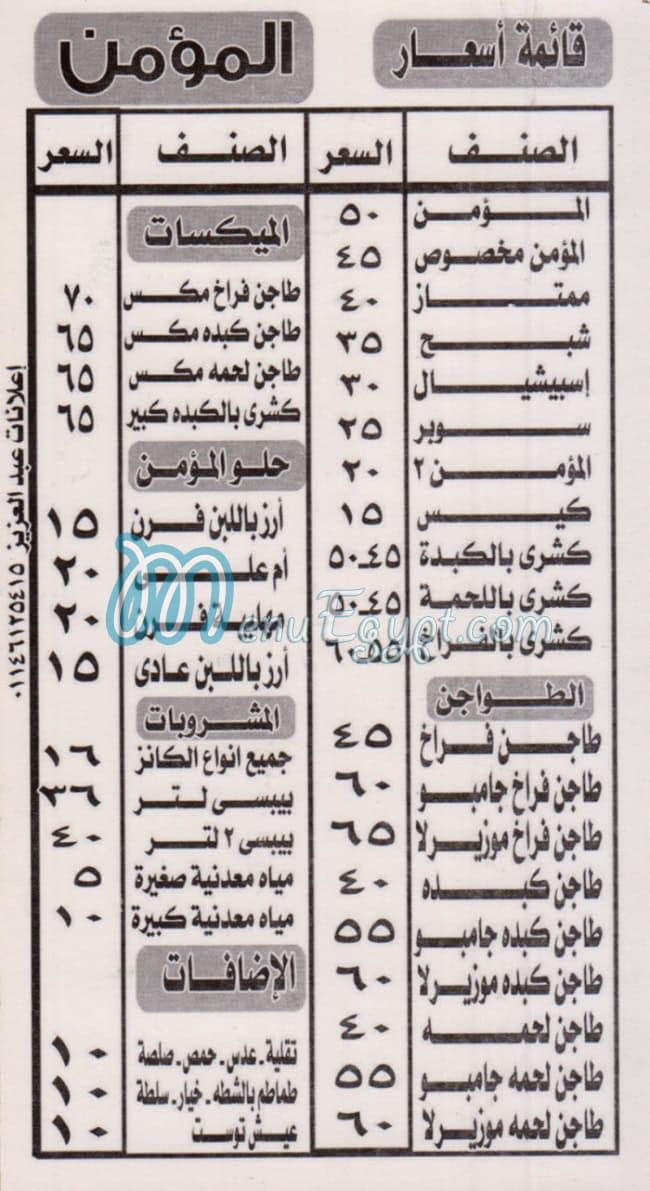 قائمة أسعار
المؤمن
الصنف السعر
المؤمن ٥٠
المؤمن مخصوص ٤٥
ممتاز ٤٠
شبح ٣٥
إسبيشيال ٣٠
سوبر ٢٥
المؤمن ٢ ٢٠
كيس ١٥
كشرى بالكبدة ٤٥-٥٠
كشرى باللحمة ٤٥-٥٠
كشرى بالفراخ ٥٥-٦٠
الطواجن
طاجن فراخ ٤٥
طاجن فراخ جامبو ٦٠
طاجن فراخ موزيرلا ٦٥
طاجن كبده ٤٠
طاجن كبده جامبو ٥٥
طاجن كبده موزيرلا ٦٠
طاجن لحمه ٤٠
طاجن لحمه جامبو ٥٥
طاجن لحمه موزيرلا ٦٠
الصنف السعر
الميكسات
طاجن فراخ مكس ٧٠
طاجن كبده مكس ٦٥
طاجن لحمه مكس ٦٥
كشرى بالكبده كبير ٦٥
حلو المؤمن
أرز باللبن فرن ١٥
أم على ٢٠
مهلبية فرن ٢٠
أرز باللبن عادى ١٥
المشروبات
جميع انواع الكانز ١٦
بيبسى لتر ٣٦
بيبسى ٢ لتر ٤٠
مياه معدنية صغيرة ٥
مياه معدنية كبيرة ١٠
الإضافات
تقلية - عدس - حمص - صلصة ١٠
طماطم بالشطه - خيار - سلطة ١٠
عيش توست ١٠
إعلانات عبد العزيز ٠١١٤٦١٢٥٤١٥
MenuEgypt.com